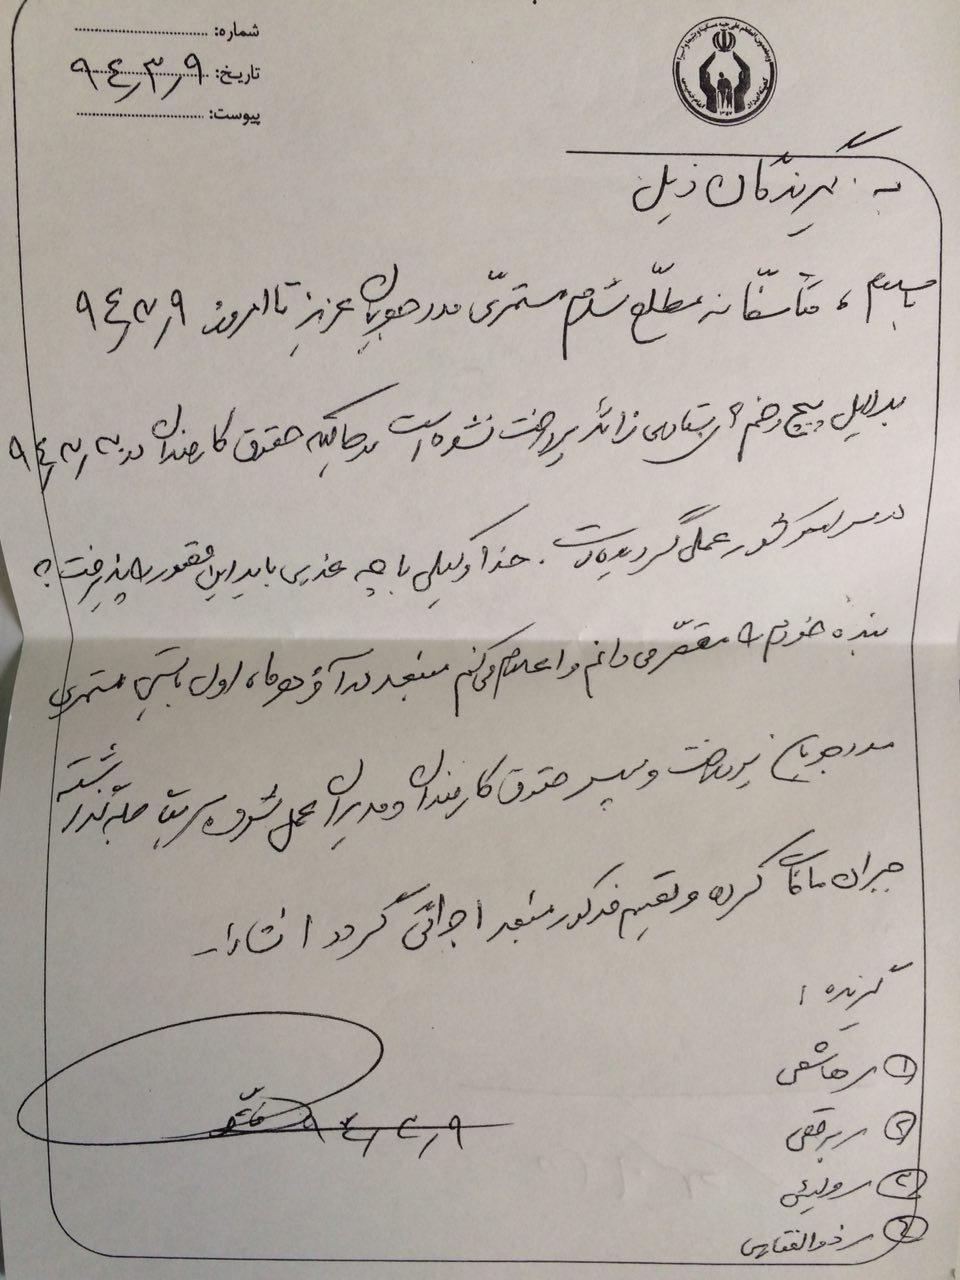 شماره:
تاریخ: ۹۴/۳/۹
پیوست:
به: گیرندگان ذیل
باسلام، متأسفانه مطلع شدم مستمری مددجویان عزیز تا امروز ۹۴/۳/۹
بدلیل پیچ و خم های زائد پرداخت نشده است در حالیکه حقوق کارمندان در ۹۴/۳/
در سراسر کشور عملی گردیده است. خدا وکیلی با چه عذری باید این قصور را پذیرفت؟
بنده خودم را مقصر می دانم و اعلام می کنم منبعد در آخر هر ماه، اول بایستی مستمری
مددجویان پرداخت و سپس حقوق کارمندان و مدیران عمل شود، سریعا گذشته
جبران مافات کرده و تقسیم مذکور منبعد اجرائی گردد انشاءا...
گیرنده:
۱ هاشمی
۲ برقعی
۳
۴ ذوالفقاری
۹۴/۳/۹